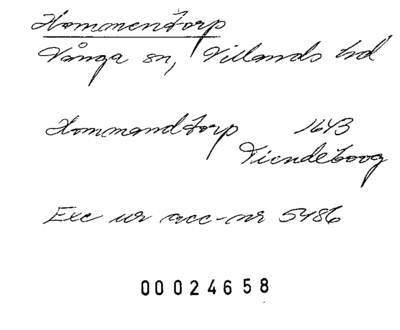 Hommentorp
Vånga sn, Villands hd
Hommandtorp 1643
Tiendeboog
Exc ur acc-nr 5486
00024658